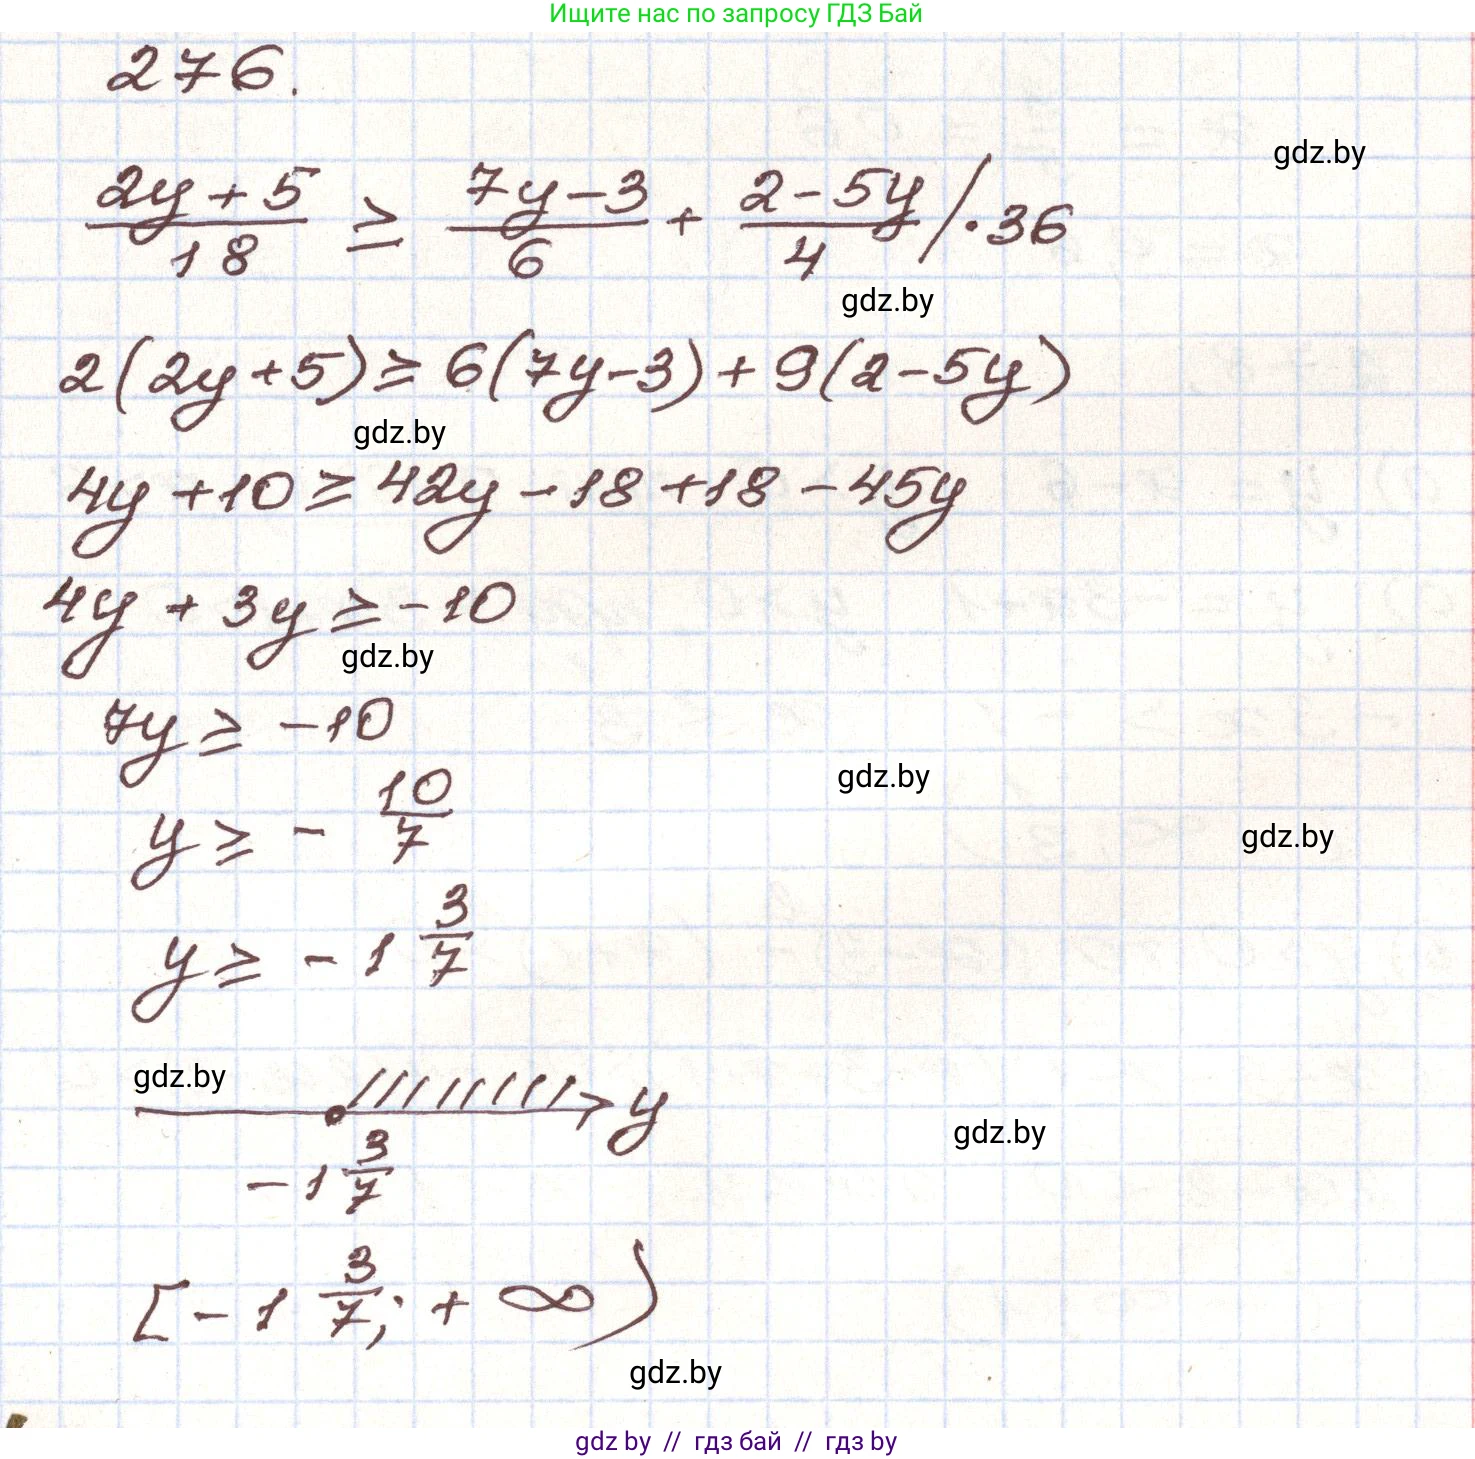 Ищите нас по запросу ГДЗ Бай
276.
gdz.by
(2y + 5)/18 ≥ (7y - 3)/6 + (2 - 5y)/4 / · 36
gdz.by
2(2y + 5) ≥ 6(7y - 3) + 9(2 - 5y)
gdz.by
4y + 10 ≥ 42y - 18 + 18 - 45y
4y + 3y ≥ -10
gdz.by
7y ≥ -10
gdz.by
y ≥ - 10/7
gdz.by
y ≥ - 1 3/7
gdz.by
y
gdz.by
- 1 3/7
[- 1 3/7; + ∞)
gdz.by
gdz by // гдз бай // гдз by